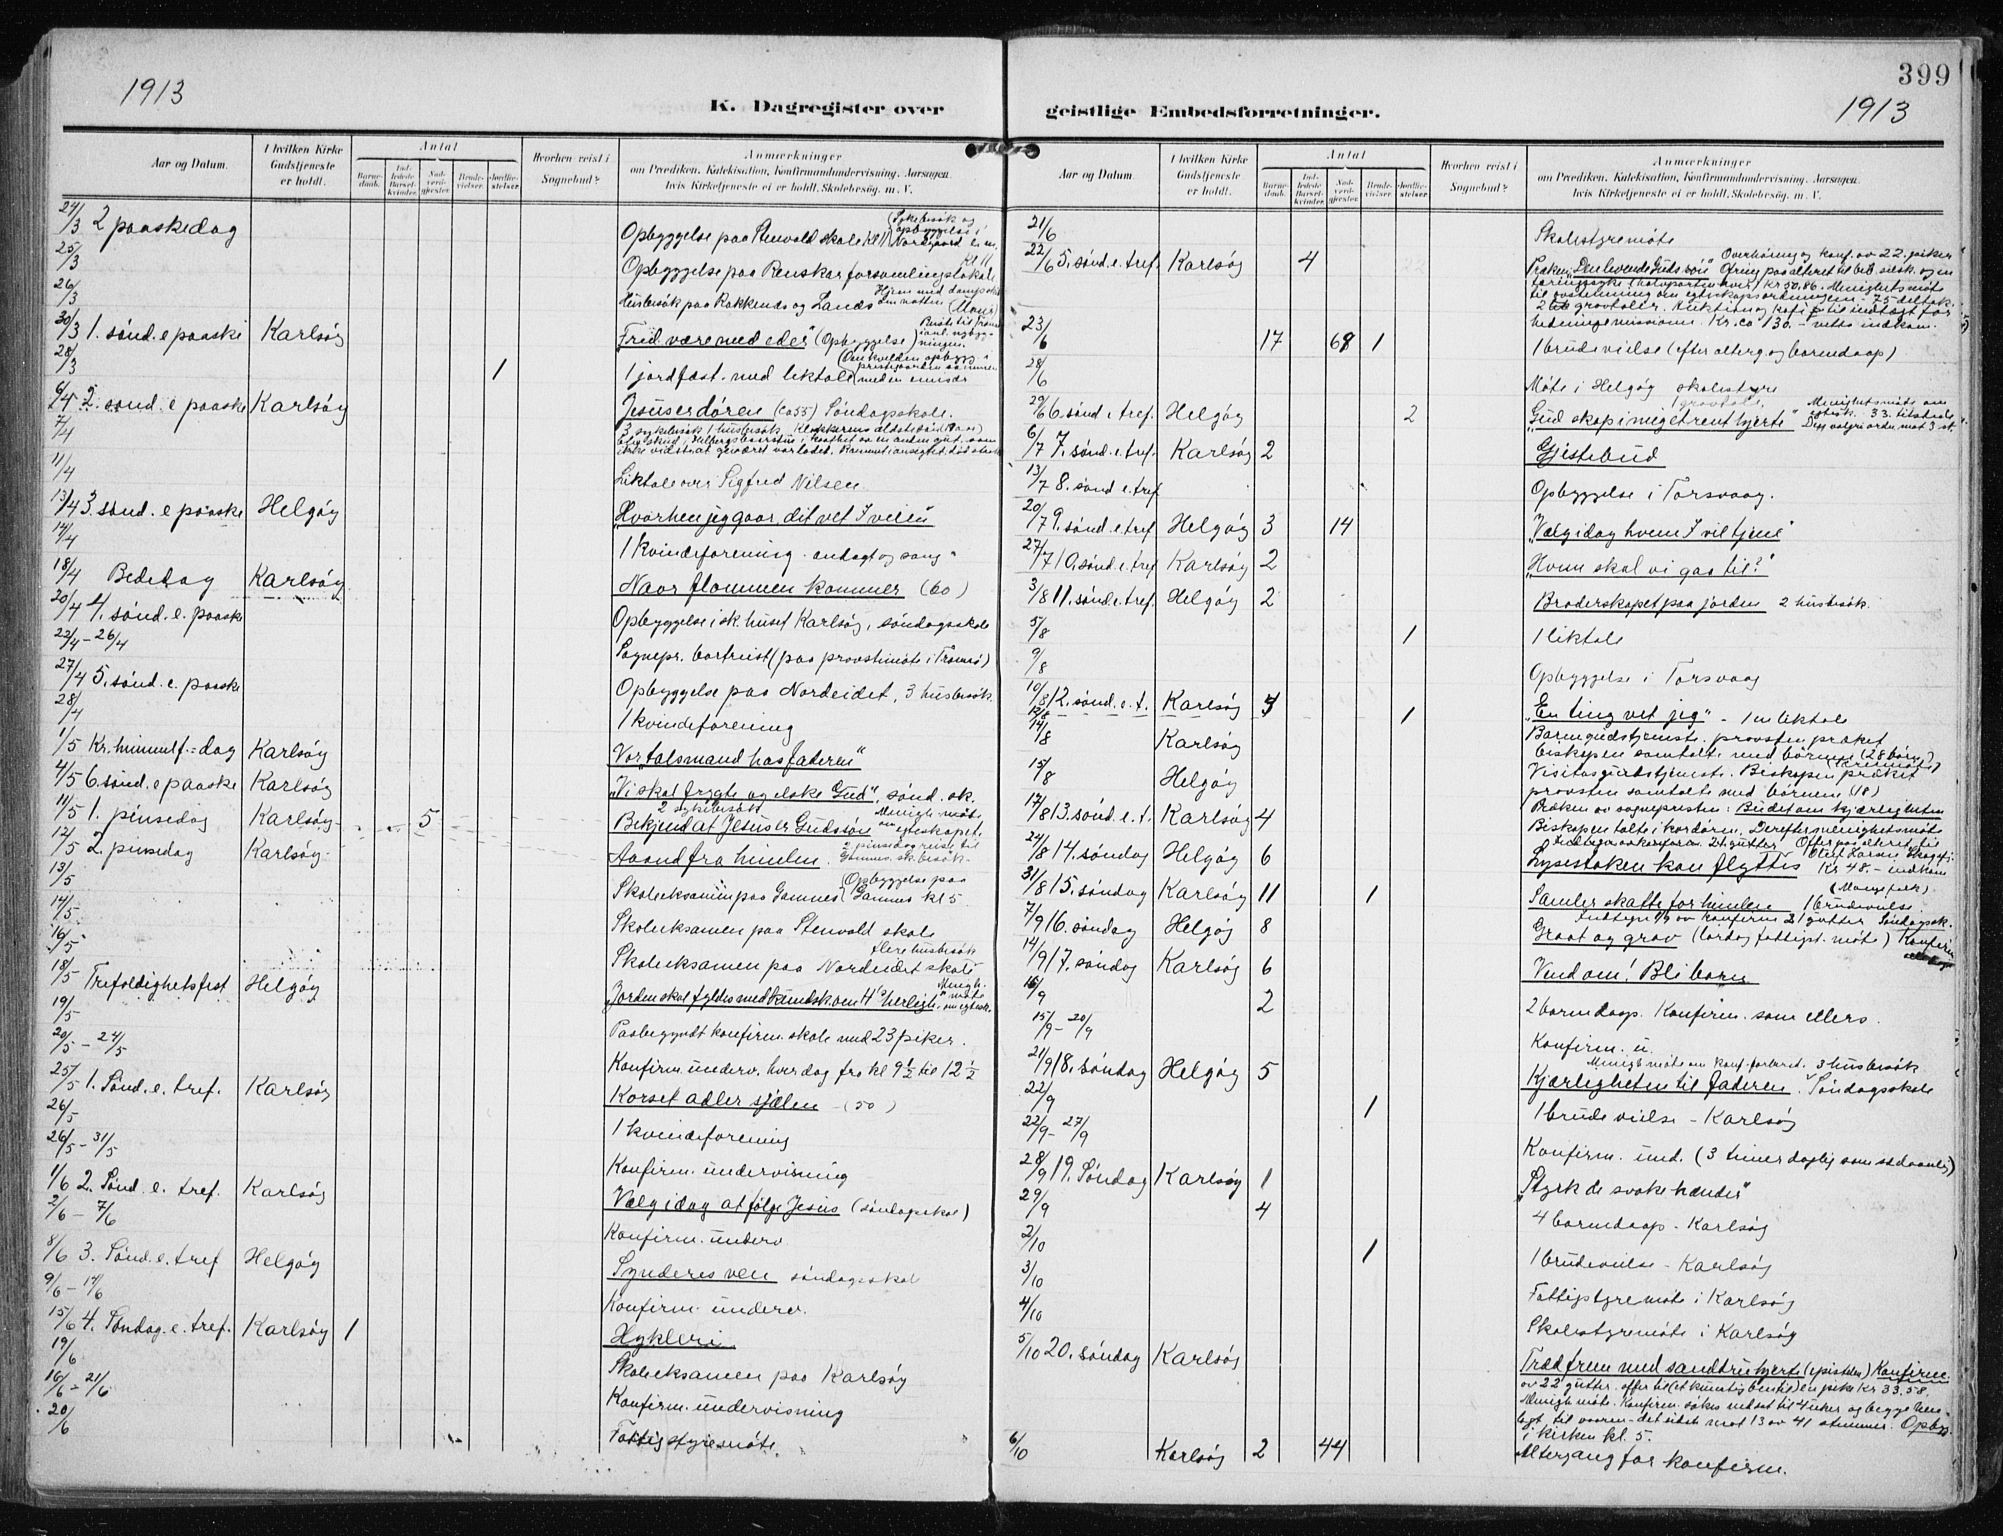 1913
399
1913
K. Dagregister over geistlige Embedsforretninger.
Aar og Datum.
I hvilken Kirke Gudstjeneste er holdt.
Antal
Barnedaab.
Indledede Barselkvinder.
Nadverdgjester.
Brudevielser.
Jordfæstelser.
Hvorhen reist i Sognebud?
Anmærkninger
om Prædiken, Katekisation, Konfirmandundervisning, Aarsagen, hvis Kirketjeneste ei er holdt, Skolebesøg. m. V.
24/3 2 paaskedag Opbyggelse paa Stenvold skole kl 11 (Sykebesøk og opbyggelse i Nordgaard e.m.
25/3 Opbyggelse paa Renskar forsamlingslokale Kl 11
26/3 Husbesøk paa Rakkenes og
30/3 1. sønd. e paaske Karlsøy "Fred være med eder" (Opbyggelse)
28/3 1 1 jordfæst. med liktale (Om kvelden opbygg. i prestegaarden sammen med en emisær
6/4 2. sønd. e paaske Karlsøy Jesus er døren (ca 55) Søndagsskole.
7/4 3 sykebesøk 1 husbesøk
11/4 Liktale over Sigfred Nilsen
13/4 3. sønd. e paaske Helgøy "Hvorhen jeg gaar, dit vet I veien"
14/4 1 kvindeforening - andagt og sang -
18/4 Bededag Karlsøy Naar flommen kommer (60)
20/4 4. sønd. e. paaske Opbyggelse i sk. huset Karlsøy, søndagsskole
22/4 - 26/4 Sognepr. bortreist (paa provstimøte i Tromsø)
27/4 5. sønd. e. paaske Opbyggelse paa Nordeidet, 3 husbesøk
28/4 1 kvindeforening
1/5 Kr. himmelf.=dag Karlsøy Vor talsmand hos faderen"
4/5 6. sønd. e paaske Karlsøy "Vi skal frygte og elske Gud", sønd. sk.
11/5 1. pinsedag Karlsøy 5 2 sykebesøk Bekjend at Jesus er Guds søn Menigh. møte om egteskapet.
12/5 2. pinsedag Karlsøy Aand fra himlen. 2 pinsedag reise til Gamnes. sk. besøk -
13/5 Skoleeksamen paa Gamnes (Opbyggelse paa Gamnes kl 5
14/5 Skoleeksamen paa Stenvold skole
16/5 Skoleeksamen paa Nordeidet skole flere husbesøk
18/5 Trefoldighetsfest Helgøy "Jorden skal fyldes med kundsk. om H's herligh." Menigh. møte om egtesk.
19/5 Paabegyndt konfirm. skole med 23 piker.
20/5 - 24/5 Konfirm. underv. hver dag fra kl 9 ½ til 12 ½
25/5 1. Sønd. e. tref. Karlsøy Korset adler sjælen - (50)
26/5 1 kvindeforening
26/5 - 31/5 Konfirm. undervisning
1/6 2. Sønd. e. tref. Karlsøy Vælg idag at følge Jesus (søndagsskol)
2/6 - 7/6 Konfirm. underv.
8/6 3. Sønd. e. tref Helgøy Synderes ven søndagsskol
9/6 - 14/6 Konfirm. underv.
15/6 4. Søndag. e. tref. Karlsøy 1 Hykleri
19/6 Skoleeksamen paa Karlsøy
16/6 - 21/6 Konfirm. undervisning
20/6 Fattigstyremøte.
Aar og Datum
I hvilken Kirke Gudstjeneste er holdt.
Antal
Barnedaab.
Indledede Barselkvinder.
Nadverdgjester.
Brudevielser.
Jordfæstelser.
Hvorhen reist i Sognebud?
Anmærkninger
om Prædiken, Katekisation, Konfirmandundervisning, Aarsagen, hvis Kirketjeneste ei er holdt, Skolebesøg. m. V.
21/6 Skolestyremøte
22/6 5. sønd. e. tref. Karlsøy 4 Overhøring og konf. av 22 piker
Præken "Den levende Guds søn"
Kr 50.86. Menighetsmøte
75 deltok.
hedningemissionen. Kr. ca 130. - netto indkom.
23/6 17 68 1 1 brudevielse (efter alterg. og barnedaap)
28/6 Møte i Helgøy skolestyre
29/6 6. sønd. e. tref. Helgøy 2 "Gud skap i mig et rent hjerte" 1 gravtale. Menighetsmøte om
6/7 7. sønd. e. tref. Karlsøy 2 Gjestebud
13/7 8. sønd e. tref Opbyggelse i Torsvaag.
20/7 9. sønd. e. tref Helgøy 3 14 "Vælg idag hvem I vil tjene"
27/7 10. sønd. e. tref Karlsøy 2 "Hvem skal vi gaa til?"
3/8 11. sønd. e. tref. Helgøy 2 Broderskapet paa jorden 2 husbesøk.
5/8 1 1 liktale
9/8 Opbyggelse i Torsvaag
10/8 12. sønd. e. t. Karlsøy "En ting vet jeg" - 1 en liktale
12/8 1
14/8 Karlsøy Barnegudstjeneste. provsten præket
biskopen samtalte med børnene (28 børn)
15/8 Helgøy Visitasgudstjeneste. Biskopen præket
provsten samtalte med børnene (18)
17/8 13. sønd. e. t. Karlsøy 4 Præken av sognepresten: Budet om kjærligheten
Biskopen talte i kordøren. Derefter menighetsmøte
24/8 14. søndag Helgøy 6 Lysestaken kan flyttes Kr 48. - indkom
31/8 15. søndag Karlsøy 11 1 Samler skatte for himlen 1 brudevielse (Mange folk)
7/9 16. søndag Helgøy 8 Graat og grav (lørdag fattigst. møte) Konfirm.
14/9 17. søndag Karlsøy 6 Vend om! Bli barn
16/9 2 2 barnedaap. Konfirm. som ellers.
15/9 - 20/9 Konfirm. u.
21/9 18. søndag Helgøy 5 Menigh. møte om konf. forbered. 3 husbesøk
Kjærligheten til faderen. Søndagsskole
22/9 1 1 brudevielse - Karlsøy
22/9 - 27/9 Konfirm. und. (3 timer daglig som sædvanlig)
28/9 19. Søndag Karlsøy 1 "Styrk de svake hænder"
29/9 4 4 barnedaap - Karlsøy
2/10 1 1 brudevielse - Karlsøy
3/10 Fattigstyremøte i Karlsøy
4/10 Skolestyremøte i Karlsøy
5/10 20. søndag Karlsøy Træd frem med sandru hjerte (epistelen) Konfirm.
av 22 gutter. offer til (et kunstig ben til) en pike Kr 33.58.
Menigh. møte. Konfirm. søkes nedsat til 4 uker og begge henlagt til vaaren - det sidste mot 13 av 41 stemmer. Opbyg.
i kirken kl. 5.
6/10 Karlsøy 2 44 Altergang for konfirm.